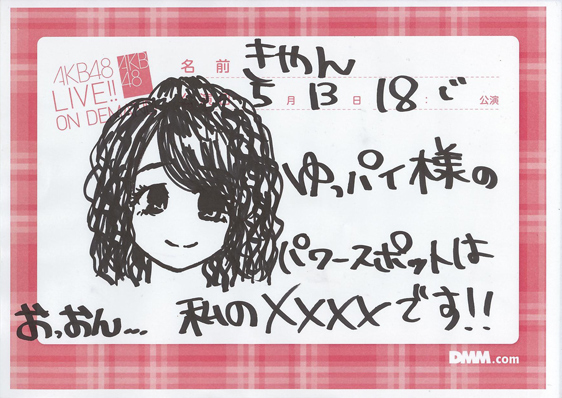 AKB48
LIVE!!
ON DEM
AKB
48
名前 きゃん
5月13日 18: じ 公演
ゆっパイ様の
パワースポットは
おっおん... 私のXXXXです!!
DMM.com